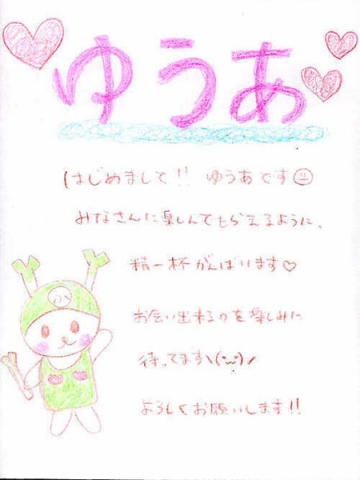 ゆうあ
はじめまして!! ゆうあです☺
みなさんに楽しんでもらえるように、
精一杯がんばります♡
お会い出来るのを楽しみに
待ってますヽ(・ー・)ノ
よろしくお願いします!!